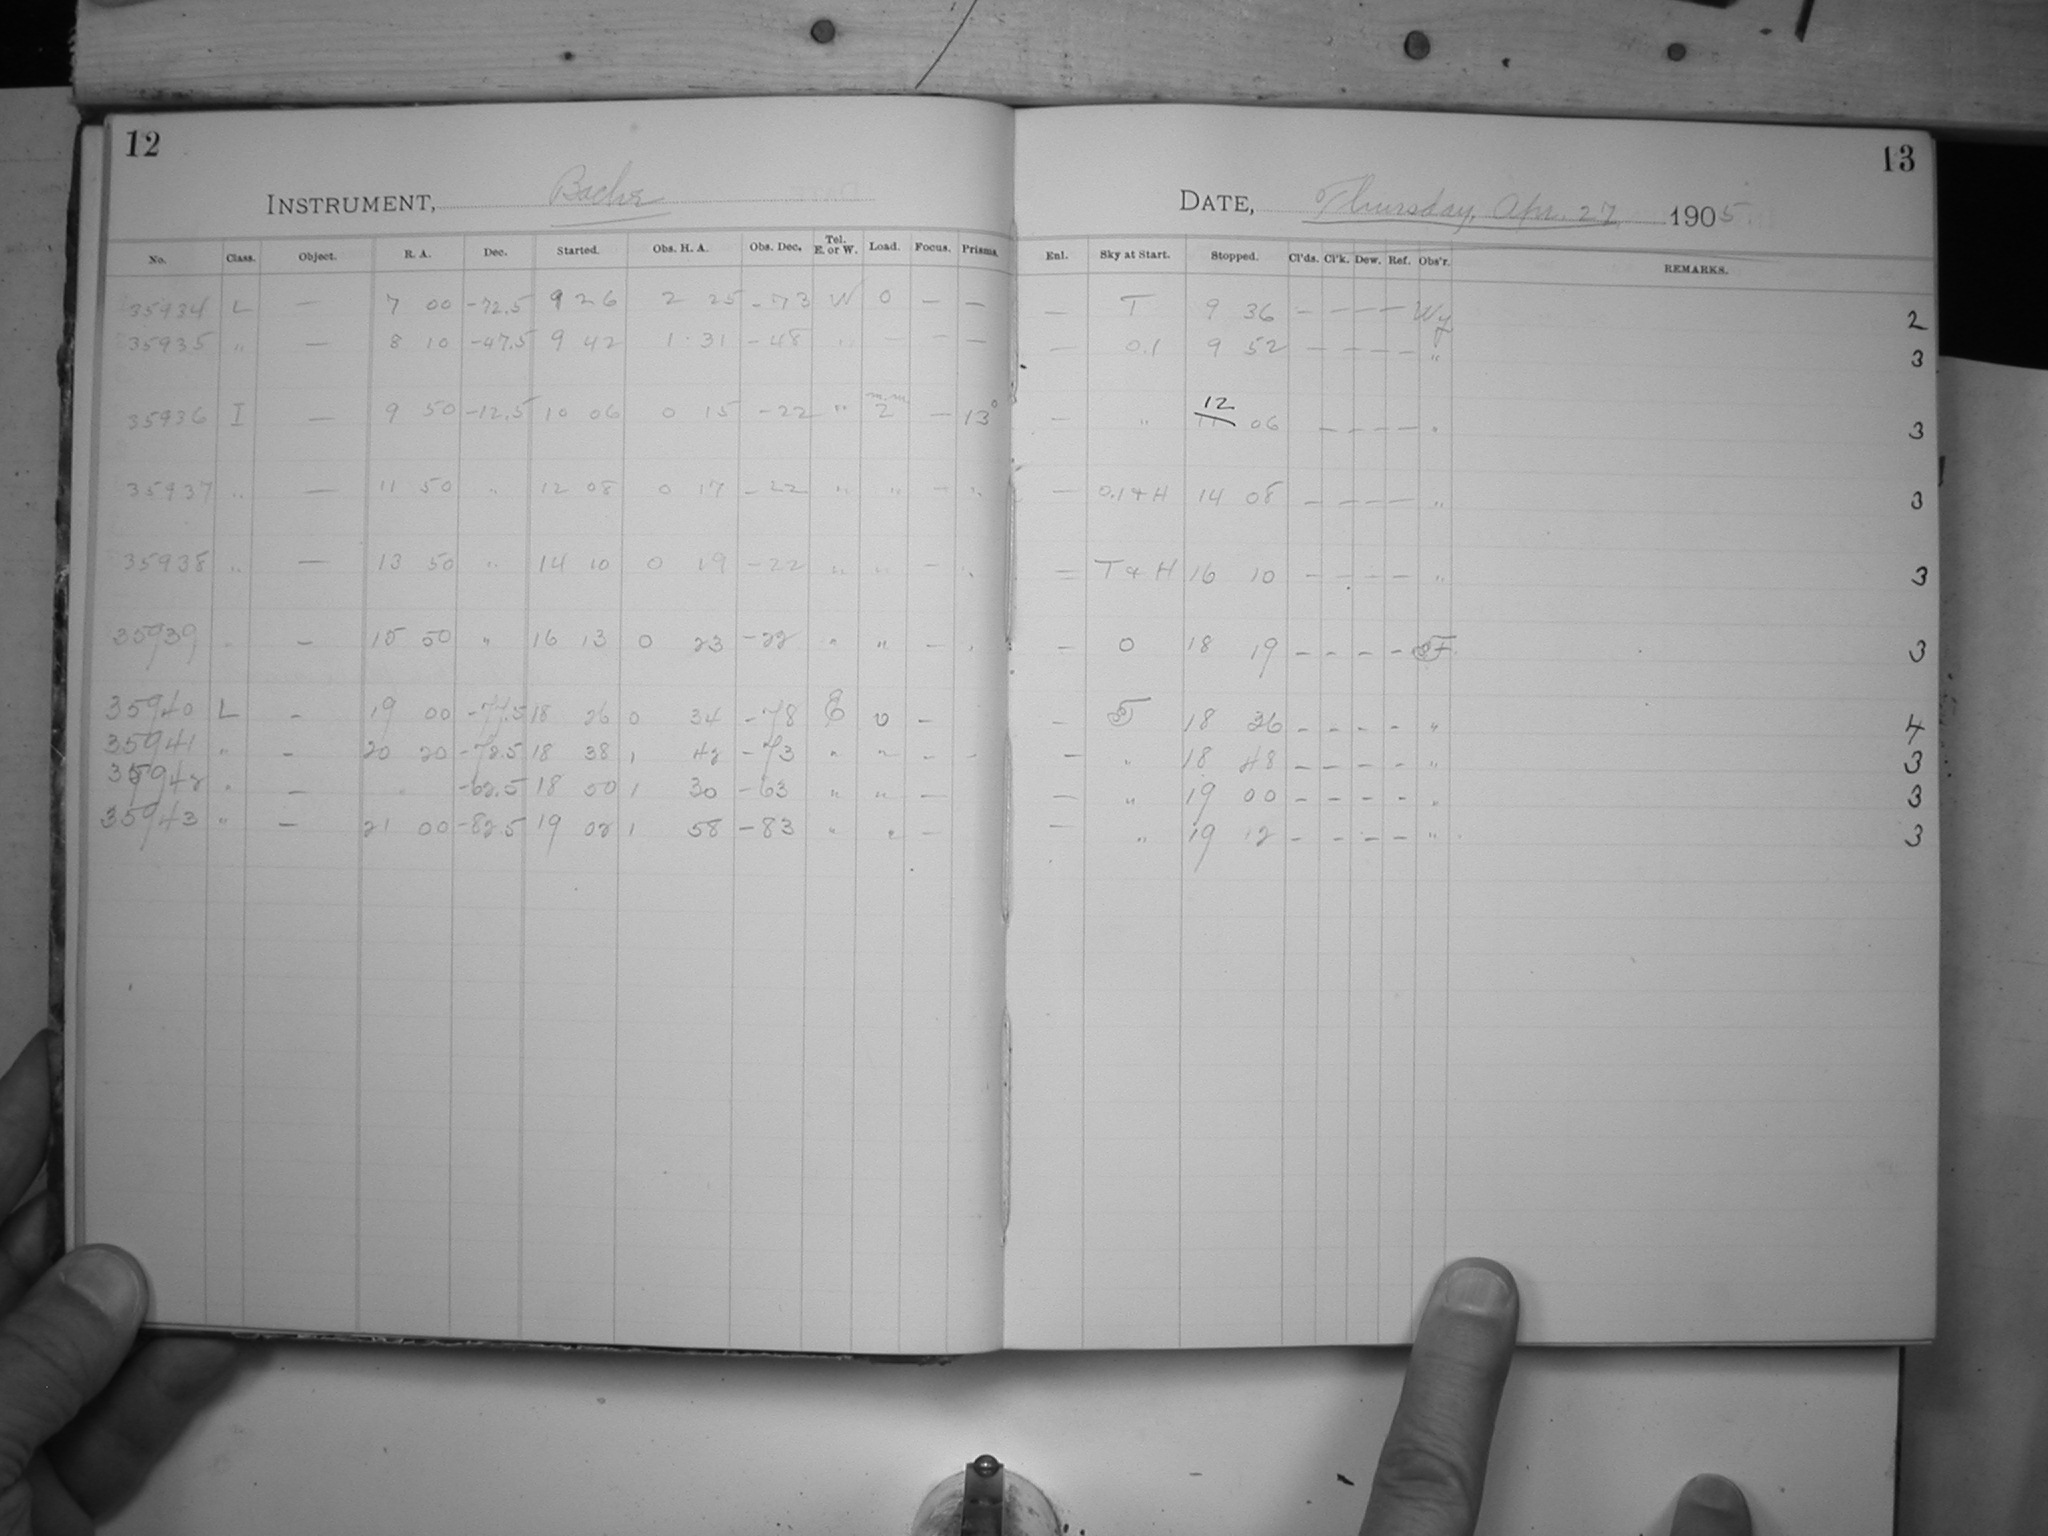 12
INSTRUMENT, Bache
No. Class. Object. R. A. Dec. Started. Obs. H. A. Obs. Dec. Tel. E. or W. Load. Focus. Prisms.
35934 L — 7 00 -72.5 9 26 2 25 -73 W 0 — —
35935 " — 8 10 -47.5 9 42 1 31 -48 " — — —
35936 I — 9 50 -12.5 10 06 0 15 -22 " m.m. 2 — 13°
35937 " — 11 50 " 12 08 0 17 -22 " " — "
35938 " — 13 50 " 14 10 0 19 -22 " " — "
35939 " — 15 50 " 16 13 0 23 -22 " " — "
35940 L — 19 00 -77.5 18 26 0 34 -78 E 0 —
35941 " — 20 20 -72.5 18 38 1 42 -73 " " — —
35942 " — " -62.5 18 50 1 30 -63 " " —
35943 " — 21 00 -82.5 19 02 1 58 -83 " " —
13
DATE, Thursday, Apr. 27 1905
Enl. Sky at Start. Stopped. Cl'ds. Cl'k. Dew. Ref. Obs'r. REMARKS.
— T 9 36 — — — — Wy 2
— 0.1 9 52 — — — — " 3
— " 12 11 06 — — — — " 3
— 0.1 & H 14 08 — — — — " 3
— T & H 16 10 — — — — " 3
— 0 18 19 — — — — F 3
— 18 36 — — — — " 4
— " 18 48 — — — — " 3
— " 19 00 — — — — " 3
— " 19 12 — — — — " 3